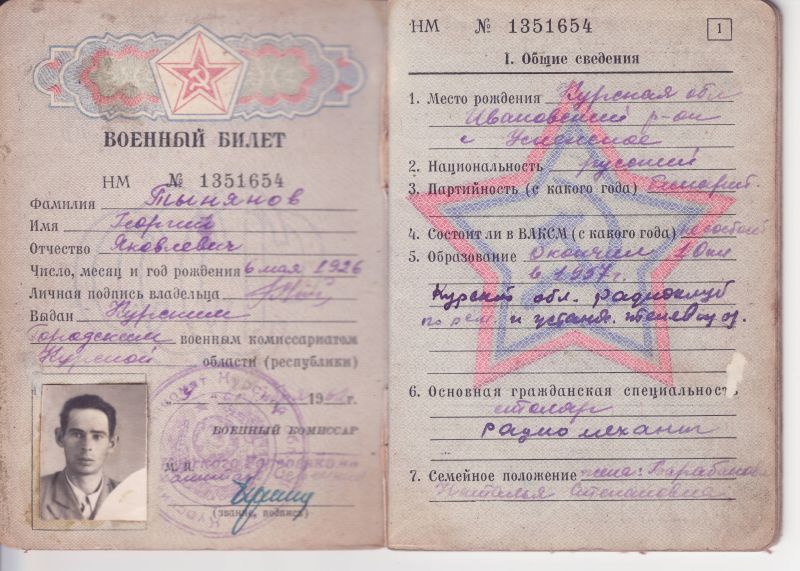 ВОЕННЫЙ БИЛЕТ
НМ № 1351654
Фамилия Тынянов
Имя Георгий
Отчество Яковлевич
Число, месяц и год рождения 6 мая 1926
Личная подпись владельца
Выдан Курским
Городским военным комиссариатом
Курской области (республики)
19
ВОЕННЫЙ КОМИССАР
М. П.
(звание, подпись)
НМ № 1351654
1
I. Общие сведения
1. Место рождения Курская обл
Ивановский р-он
с Успенское
2. Национальность русский
3. Партийность (с какого года) беспарт.
4. Состоит ли в ВЛКСМ (с какого года) не состоит
5. Образование Окончил 10 кл
в 1957г.
Курский обл. радиоклуб
по рем и устан. телевиз.
6. Основная гражданская специальность
столяр
Радио механик
7. Семейное положение жена:
Наталья Степановна